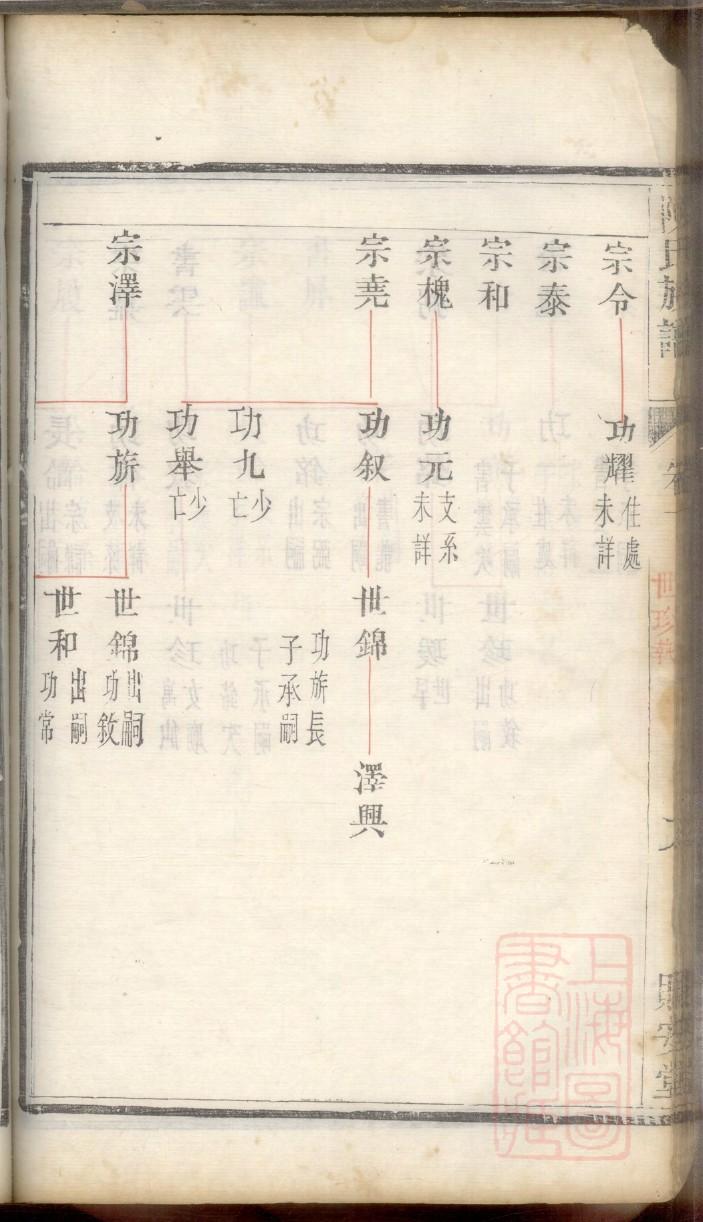 氏族譜
世珍
宗令
功耀
住處
未詳
宗泰
宗和
宗槐
功元
支系
未詳
宗堯
功叙
世錦
功旂長
子承嗣
澤興
功九
少亡
功舉
少亡
宗澤
功旂
世錦
出嗣
功敘
世和
出嗣
功常
上海圖
書館藏